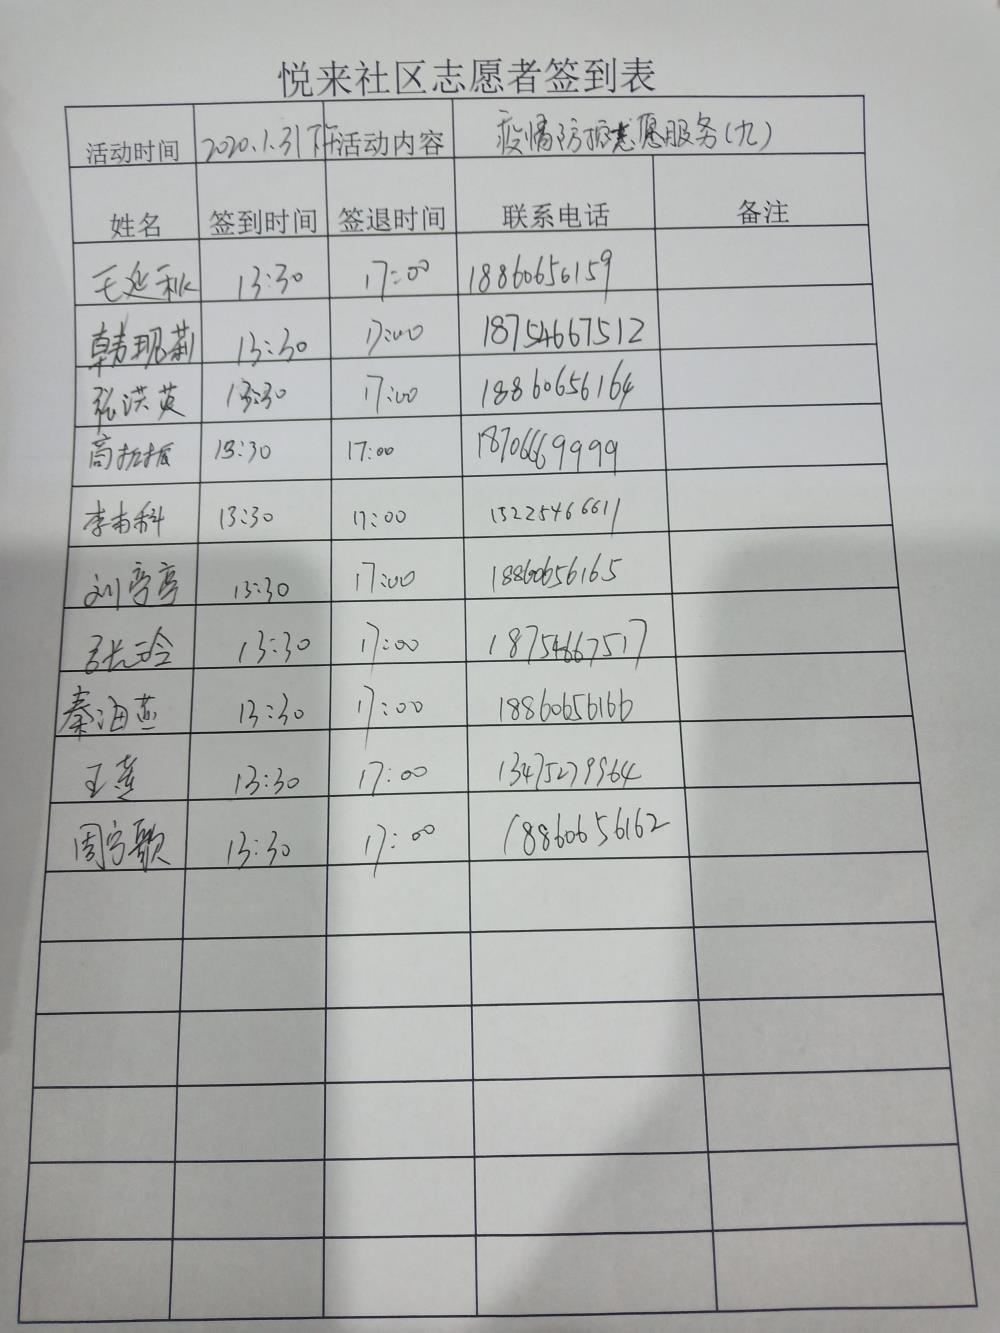 悦来社区志愿者签到表
活动时间 2020.1.31下午 活动内容 疫情防控志愿服务(九)
姓名 签到时间 签退时间 联系电话 备注
王延秋 13:30 17:00 18860656159
韩现莉 13:30 17:00 18754667512
张洪英 13:30 17:00 18860656164
高振振 13:30 17:00 18706669999
李甫科 13:30 17:00 15225466611
刘亭亭 13:30 17:00 18860656165
张玲 13:30 17:00 18754667517
秦海燕 13:30 17:00 18860656166
王莲 13:30 17:00 13475279964
周宇歌 13:30 17:00 18860656162